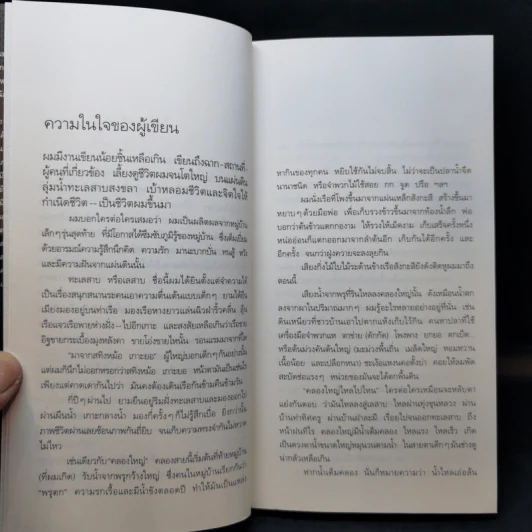 ความในใจของผู้เขียน
ผมมีงานเขียนน้อยชิ้นเหลือเกิน เขียนถึงฉาก-สถานที่
ผู้คนที่เกี่ยวข้อง เลี้ยงดูชีวิตผมจนโตใหญ่ บนแผ่นดิน
ลุ่มน้ำทะเลสาบสงขลา เบ้าหลอมชีวิตและจิตใจให้
กำเนิดชีวิต -- เป็นชีวิตผมขึ้นมา
ผมบอกใครต่อใครเสมอว่า ผมเป็นผลิตผลจากหมู่บ้าน
เล็กๆ รุ่นสุดท้าย ที่มีโอกาสได้ซึมซับภูมิรู้ของหมู่บ้าน ซึ่งเต็มเปี่ยม
ด้วยอารมณ์ความรู้สึกนึกคิด ความรัก มานะบากบั่น ทรนสู้ หวัง
และมีความฝันจากแผ่นดินนั้น
ทะเลสาบ หรือเลสาบ ชื่อนี้ผมได้ยินตั้งแต่จำความได้
เป็นเรื่องสนุกสนานระคนเอาความตื่นเต้นแบบเด็กๆ ยามได้ยืน
เมียงมองอยู่บนท่าเรือ มองเรือหางยาวแล่นฉิวฝ่าริ้วคลื่น อุ้ม
เรือแจวเรือพายห่างฝั่ง--ไปอีกเกาะ และสงสัยเหลือเกินว่าเรือขาย
อิฐขายกระเบื้องมุงหลังคา ขายโอ่งขายไหนั้น รอนแรมมาจากที่ใด
"มาจากสทิงหม้อ เกาะยอ" ผู้ใหญ่บอกเด็กๆ กันอย่างนั้น
แต่ผมก็นึกไม่ออกหรอกว่าสทิงหม้อ เกาะยอ หน้าตามันเป็นเช่นไร
เพียงแต่คาดเดากันไปว่า มันคงต้องเดินเรือกันข้ามคืนข้ามวัน
กี่ปีๆ ผ่านไป ยามยืนอยู่ริมฝั่งทะเลสาบและทอดสายตามองไป
ผ่านผืนน้ำ เกาะกลางน้ำ มองกี่ครั้งๆ ก็ไม่รู้สึกเบื่อ ยิ่งกว่านั้น
ภาพชีวิตผ่านเลยซ้อนภาพกันถี่ยิบ จนเก็บความทรงจำกันไม่หวาด
ไม่ไหว
เช่นเดียวกับ "คลองใหญ่" คลองสายนี้เริ่มต้นที่ท้ายหมู่บ้าน
(ที่ผมเกิด) รับน้ำจากพรุกว้างใหญ่ ซึ่งคนในหมู่บ้านเรียกกันว่า
"พรุตก" ความรกเรื้อและมีน้ำขังตลอดปี ทำให้มันเป็นแหล่ง
หากินของทุกคน หยิบใช้กันไม่จบสิ้น ไม่ว่าจะเป็นปลาน้ำจืด
นานาชนิด หรือจำพวกไม้ใช้สอย กก จูด ปรือ ฯลฯ
ผมนั่งเรือที่โพงขึ้นมาจากแผ่นเหล็กสังกะสี สร้างขึ้นมา
หยาบๆ ด้วยมือพ่อ เพื่อเก็บรวงข้าวขึ้นมาจากท้องน้ำลึก พ่อ
บอกว่าต้นข้าวแตกกองาม ให้รวงให้เม็ดงาม เก็บเสร็จครั้งหนึ่ง
หน่ออ่อนก็แตกออกมาจากลำต้นอีก เก็บกันได้อีกครั้ง และ
อีกครั้ง จนกว่าฝูงควายจะลงลุยกิน
เสียงกิ่งไม้ใบไม้ระด้านข้างเรือสังกะสียังดังติดหูผมมาถึง
ตอนนี้
เสียงน้ำจากพรุที่รินไหลลงคลองใหญ่นั้น ดังเหมือนน้ำตก
ลงจากผาในปริมาณมากๆ ผมรู้อะไรหลายอย่างอยู่ที่นั่น เช่น
ดินเหนียวที่ชาวบ้านเอาไปตากแห้งเก็บไว้กิน คนหาปลาที่ใช้
เครื่องมือจำพวกแห ตาข่าย (ดักกัด) โพงพาง ยกยอ ตกเบ็ด
หรือต้นม่วงคันต้นใหญ่ (มะม่วงพื้นถิ่น เมล็ดใหญ่ หอมหวาน
เนื้อน้อย และเปลือกหนา) ชะเง้อแหงนคอตั้งบ่า คอยให้ลมพัด
สะบัดช่อแรงๆ หน่วยของมันจะได้ตกพื้นดิน
"คลองใหญ่ไหลไปไหน" ใครต่อใครเหมือนจะหลับตา
แย่งกันตอบ ว่ามันไหลลงสู่เลสาบ ไหลผ่านทุ่งขุนหลวง ผ่าน
บ้านท่าทิศครู ผ่านบ้านฝาละมี เรื่อยไปจนออกทะเลสาบ ถึง
หน้าฝนทีไร คลองใหญ่มีน้ำเต็มคลอง ไหลแรง ไหลเร็ว เกิด
เป็นดวงตาน้ำขนาดใหญ่หมุนวนตามน้ำ ในสายตาเด็กๆ มันช่างดู
น่ากลัวเหลือเกิน
หากน้ำเต็มคลอง นั่นก็หมายความว่า น้ำไหลเอ่อล้น